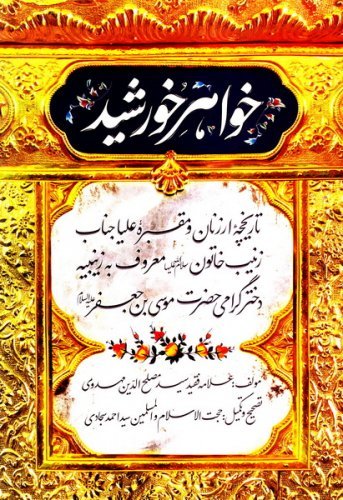 خواهر خورشید
تاریخچهٔ ارزنان و مقبرهٔ علیا جناب
زینب خاتون سلام الله علیها معروف به زینبیه
دختر گرامی حضرت موسی بن جعفر علیه السلام
مولف: علامه فقید سید مصلح الدین مهدوی
تصحیح و تکمیل: حجت الاسلام والمسلمین سید احمد سجادی